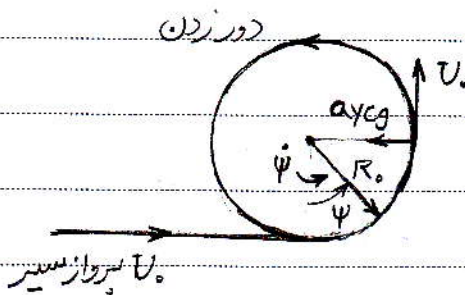 دور زدن
U₀
aycg
R₀
ψ̇
ψ
پرواز سیر U₀